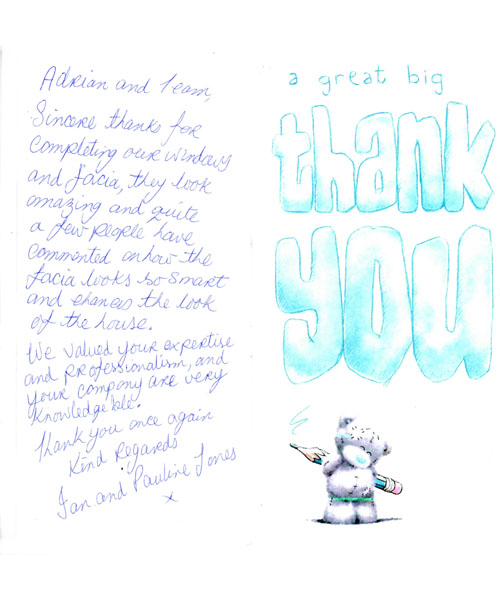 Adrian and Team,
Sincere thanks for
completing our windows
and facia, they look
amazing and quite
a few people have
commented on how the
facia looks so smart
and ehances the look
of the house.
We valued your expertise
and professionalism, and
your company are very
knowledgeble.
Thank you once again
Kind Regards
Ian and Pauline Jones
x
a great big
thank
you